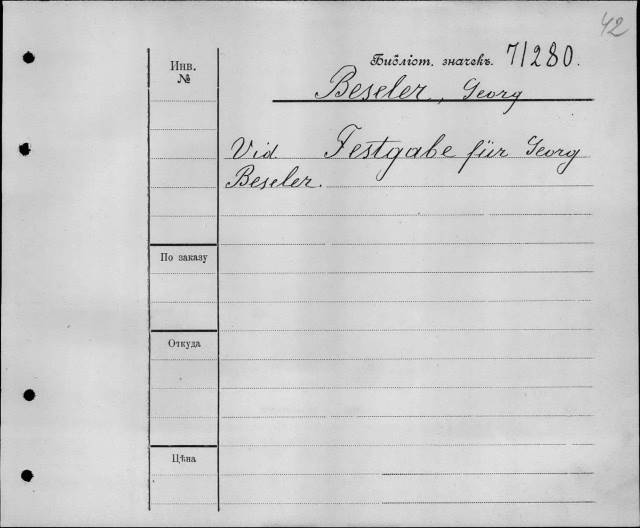 42
Инв.
№
Библіот. значекъ. 7/280.
Beseler, Georg
Vid. Festgabe für Georg
Beseler.
По заказу
Откуда
Цѣна